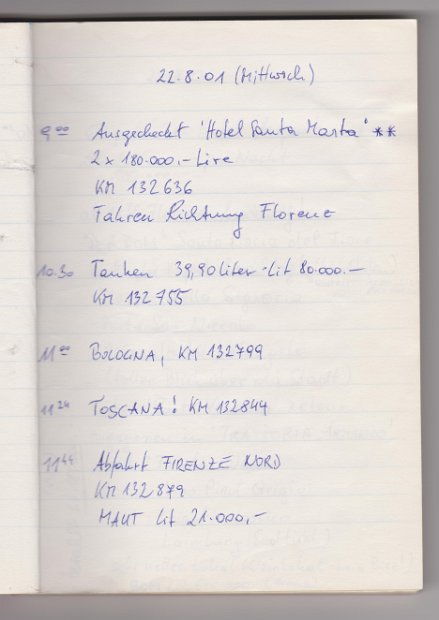 22.8.01 (Mittwoch)
9⁰⁰ Ausgecheckt 'Hotel Santa Marta' **
2 x 180.000,- Lire
KM 132636
Fahren Richtung Florenz
10.30 Tanken 39,90 Liter - Lit 80.000.-
KM 132755
11⁰⁰ BOLOGNA, KM 132799
11²⁴ TOSCANA! KM 132844
11⁴⁴ Abfahrt FIRENZE NORD
KM 132879
MAUT Lit 21.000,-